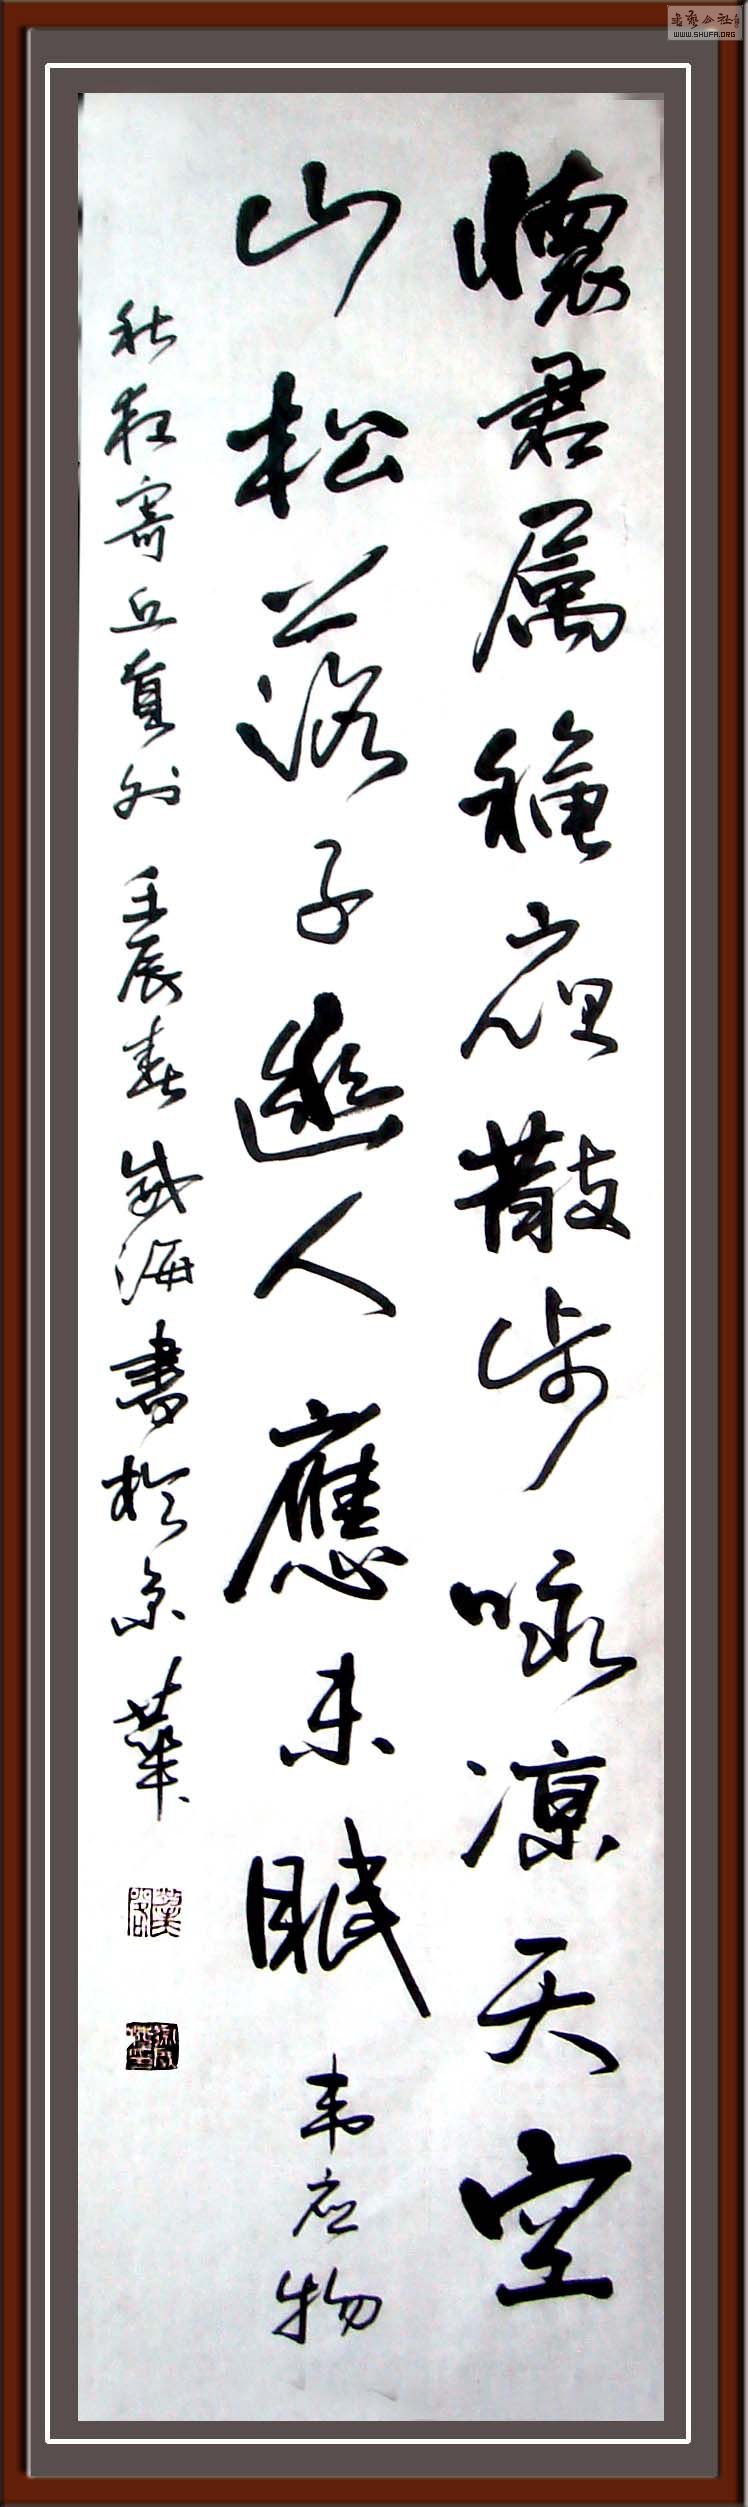 書藝公社
WWW.SHUFA.ORG
懷君属穐夜散步咏凉天空
山松落子幽人應未眠 韦应物
秋夜寄丘員外 壬辰春 海書於京華